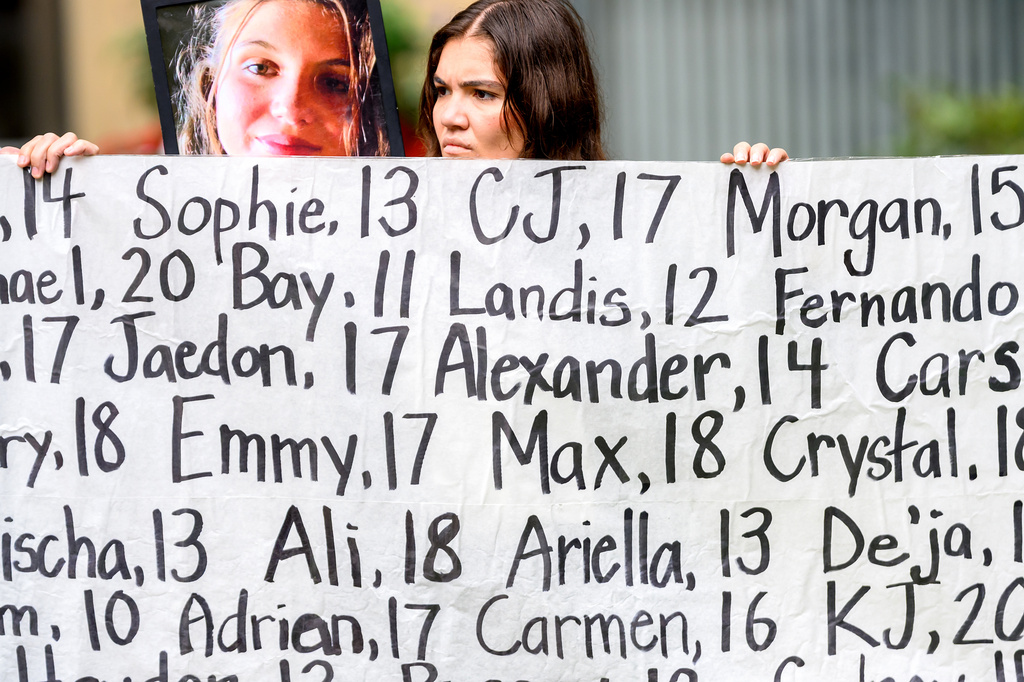 , 14 Sophie, 13 CJ, 17 Morgan, 15
ael, 20 Bay, 11 Landis, 12 Fernando
, 17 Jaedon, 17 Alexander, 14 Cars
ry, 18 Emmy, 17 Max, 18 Crystal. 18
ischa, 13 Ali, 18 Ariella, 13 De'ja, 1
m, 10 Adrian, 17 Carmen, 16 KJ, 20